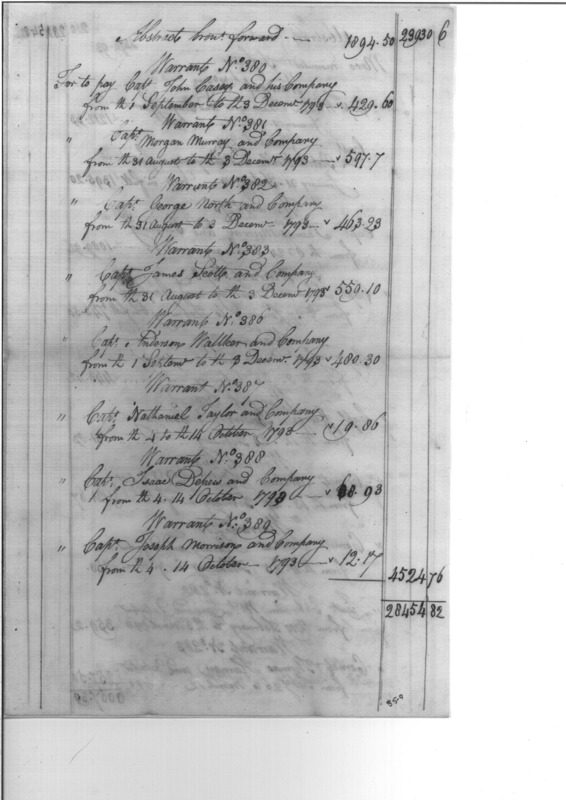 Abstracts brout forward. — 1894.50 23930 6
Warrant No. 380
For to pay Capt. John Casey and his Company
from the 1 September to the 3 Decemr 1793 429.60
Warrant No. 381
" Capt. Morgan Murray and Company
from the 31 August to the 3 Decemr 1793 — 597.7
Warrant No. 382
" Capt. George North and Company
from the 31 August to 3 Decemr 1793 — 463.23
Warrant No. 383
" Capt. James Scott and Company
from the 31 August to the 3 Decemr 1793 559.10
Warrant No. 386
" Capt. Anderson Walker and Company
from the 1 Septemr to the 3 Decemr. 1793 480.30
Warrant No. 387
" Capt. Nathaniel Taylor and Company
from the 4 to the 14 October 1793 — 19.86
Warrant No. 388
" Capt. Isaac Depew and Company
from the 4. 14 October 1793 — 8.93
Warrant No. 389
" Capt. Joseph Morrison and Company
from the 4. 14 October 1793 — 12.17
4524 76
28454 82
359